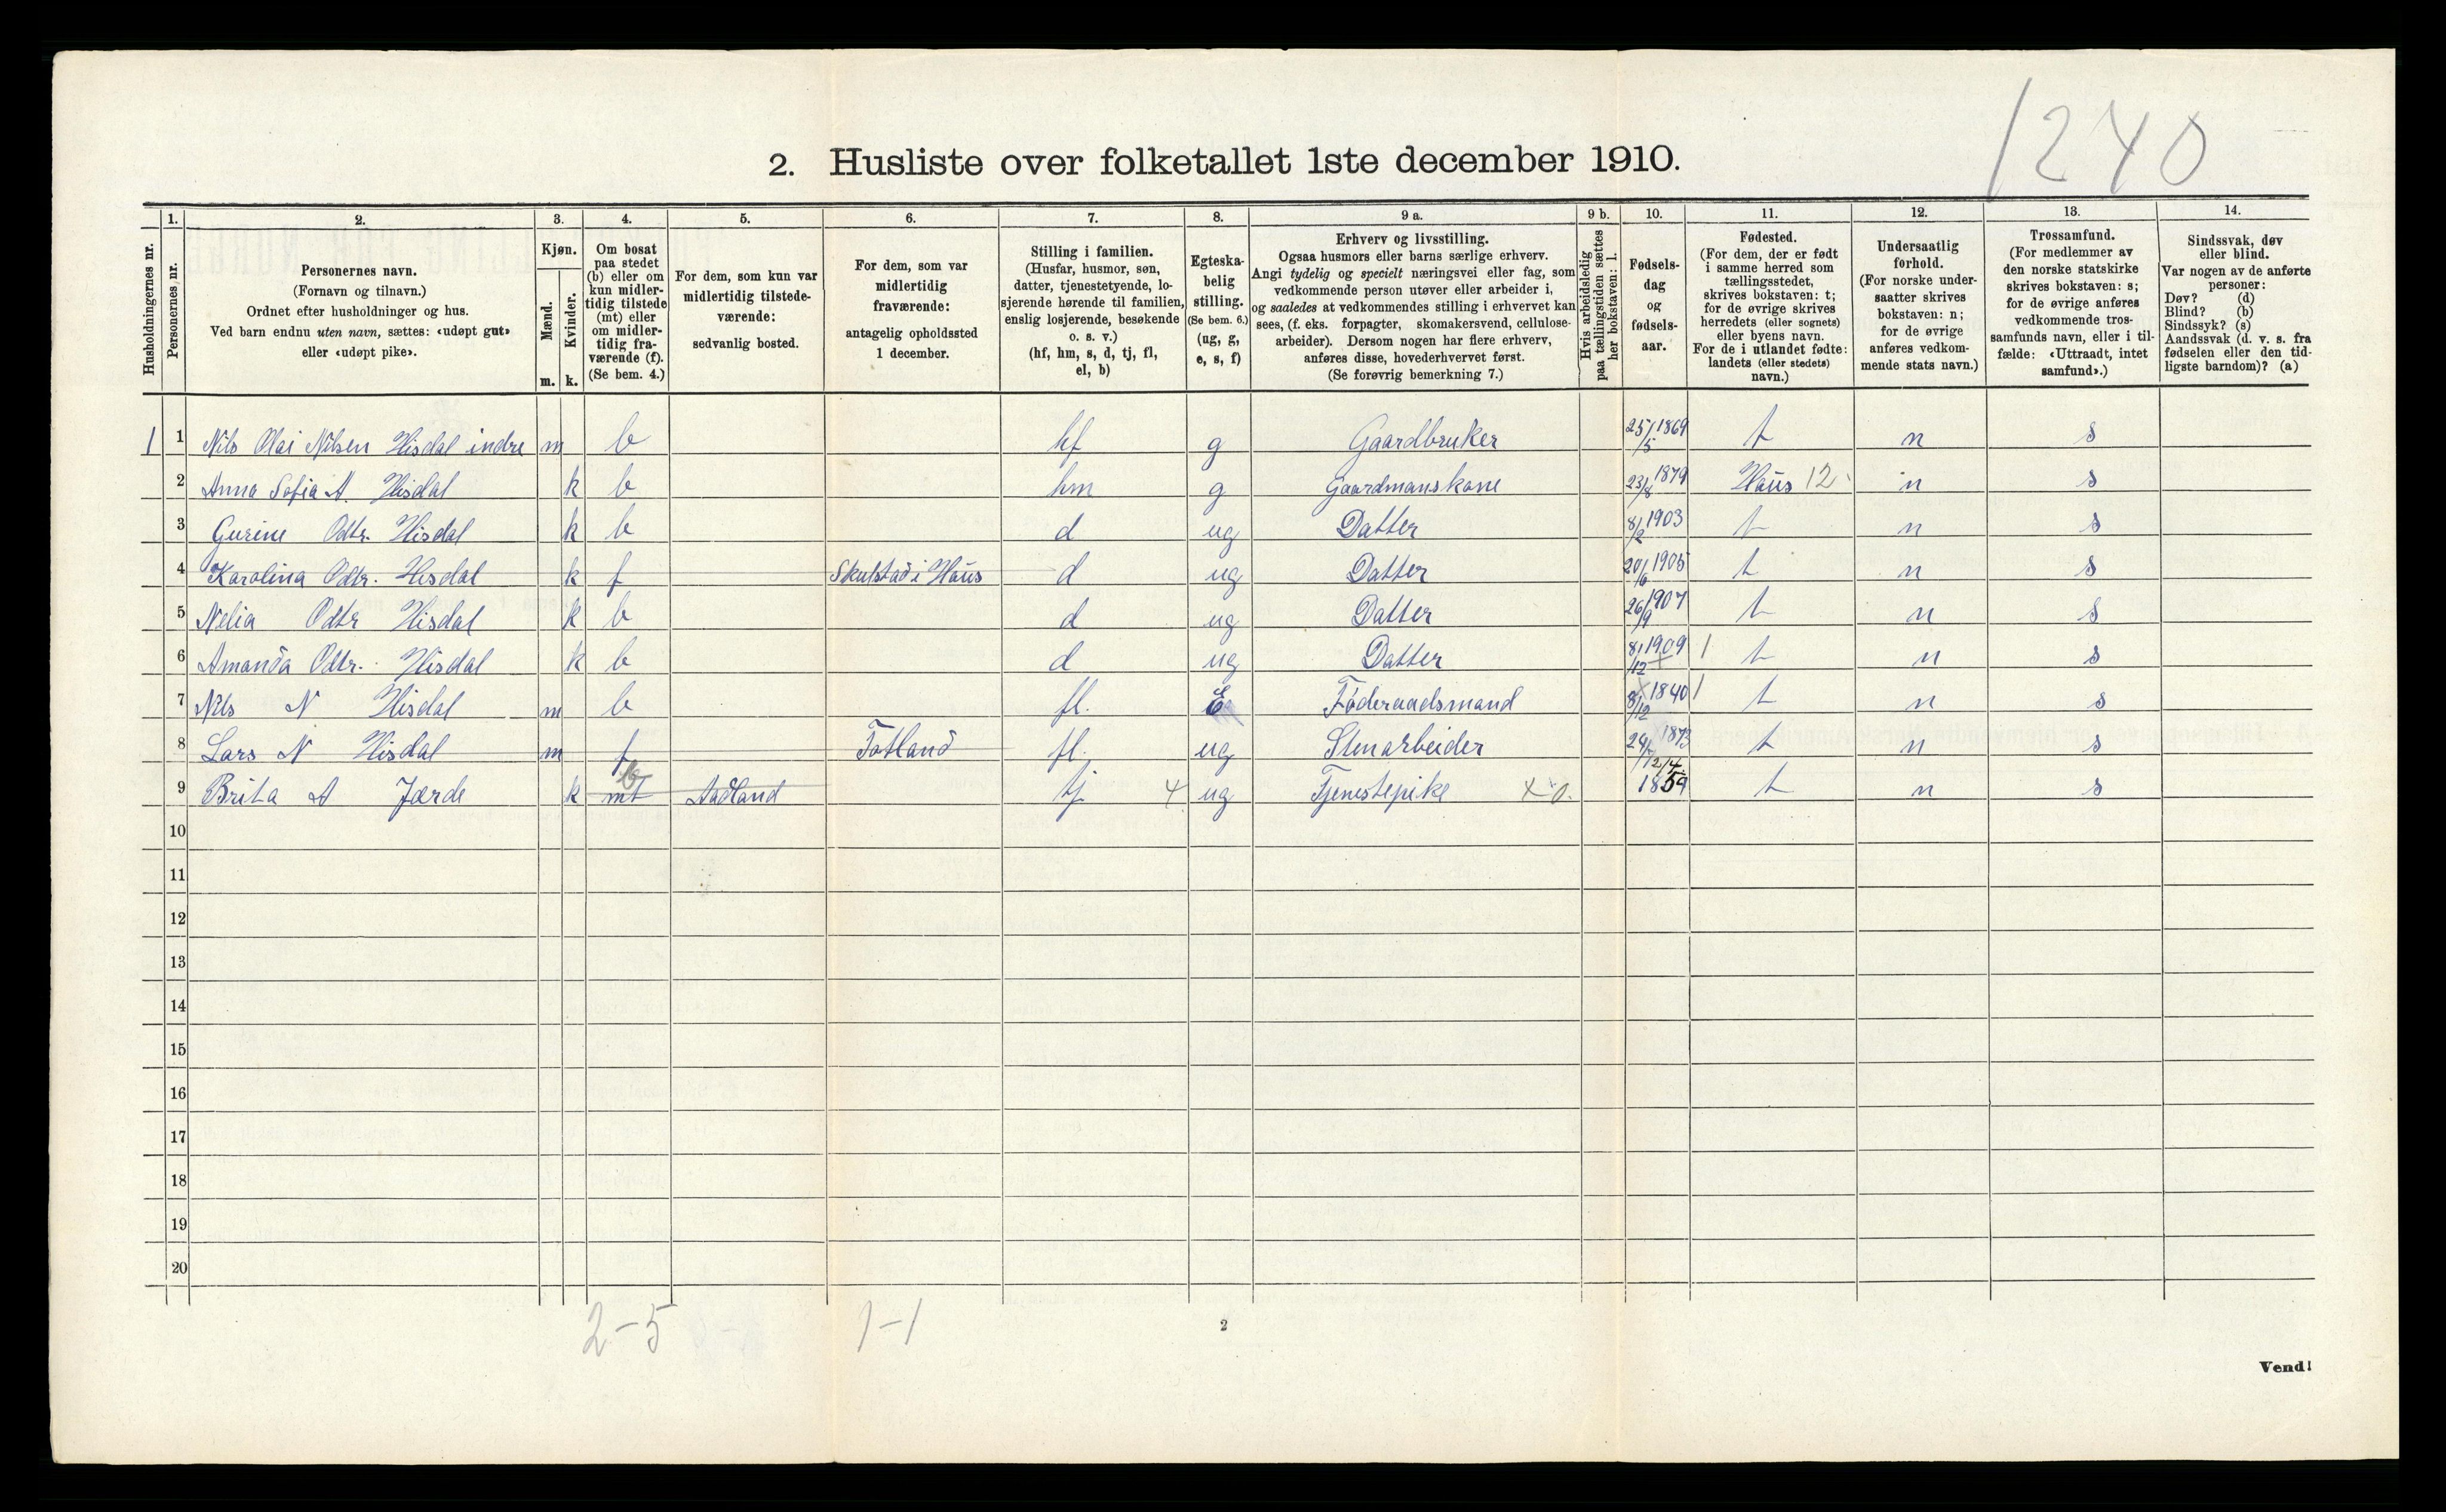 1240
2. Husliste over folketallet 1ste december 1910.
Husholdningernes nr.
1. Personernes nr.
2. Personernes navn.
(Fornavn og tilnavn.)
Ordnet efter husholdninger og hus.
Ved barn endnu uten navn, sættes: «udøpt gut»
eller «udøpt pike».
3. Kjøn.
Mænd. m.
Kvinder. k.
4. Om bosat
paa stedet
(b) eller om
kun midler-
tidig tilstede
(mt) eller
om midler-
tidig fra-
værende (f).
(Se bem. 4.)
5. For dem, som kun var
midlertidig tilstede-
værende:
sedvanlig bosted.
6. For dem, som var
midlertidig
fraværende:
antagelig opholdssted
1 december.
7. Stilling i familien.
(Husfar, husmor, søn,
datter, tjenestetyende, lo-
sjerende hørende til familien,
enslig losjerende, besøkende
o. s. v.)
(hf, hm, s, d, tj, fl,
el, b)
8. Egteska-
belig
stilling.
(Se bem. 6.)
(ug, g,
e, s, f)
9 a. Erhverv og livsstilling.
Ogsaa husmors eller barns særlige erhverv.
Angi tydelig og specielt næringsvei eller fag, som
vedkommende person utøver eller arbeider i,
og saaledes at vedkommendes stilling i erhvervet kan
sees, (f. eks. forpagter, skomakersvend, cellulose-
arbeider). Dersom nogen har flere erhverv,
anføres disse, hovederhvervet først.
(Se forøvrig bemerkning 7.)
9 b. Hvis arbeidsledig
paa tællingstiden sættes
her bokstaven: l.
10. Fødsels-
dag
og
fødsels-
aar.
11. Fødested.
(For dem, der er født
i samme herred som
tællingsstedet,
skrives bokstaven: t;
for de øvrige skrives
herredets (eller sognets)
eller byens navn.
For de i utlandet fødte:
landets (eller stedets)
navn.)
12. Undersaatlig
forhold.
(For norske under-
saatter skrives
bokstaven: n;
for de øvrige
anføres vedkom-
mende stats navn.)
13. Trossamfund.
(For medlemmer av
den norske statskirke
skrives bokstaven: s;
for de øvrige anføres
vedkommende tros-
samfunds navn, eller i til-
fælde: «Uttraadt, intet
samfund».)
14. Sindssvak, døv
eller blind.
Var nogen av de anførte
personer:
Døv? (d)
Blind? (b)
Sindssyk? (s)
Aandssvak (d. v. s. fra
fødselen eller den tid-
ligste barndom)? (a)
1 1 Nils Olai Nilsen Hisdal indre m b hf g Gaardbruker 25/5 1869 t n s
2 Anna Sofia A. Hisdal k b hm g Gaardmanskone 23/8 1879 Haus 12 n s
3 Gurine Odtr. Hisdal k b d ug Datter 8/2 1903 t n s
4 Karolina Odtr. Hisdal k f Skulstad i Haus d ug Datter 20/6 1905 t n s
5 Nelia Odtr Hisdal k b d ug Datter 26/9 1907 t n s
6 Amanda Odtr. Hisdal k b d ug Datter 8/12 1909 1 t n s
7 Nils N Hisdal m b fl. E Føderaadsmand 8/12 1840 1 t n s
8 Lars N Hisdal m f Totland fl. ug Stenarbeider 1873 t n s
9 Brita A Jærde k mt b Aadland tj 4 ug Tjenestepike x 0. 1859 t n s
10
11
12
13
14
15
16
17
18
19
20
2-5 1-1
2
Vend!